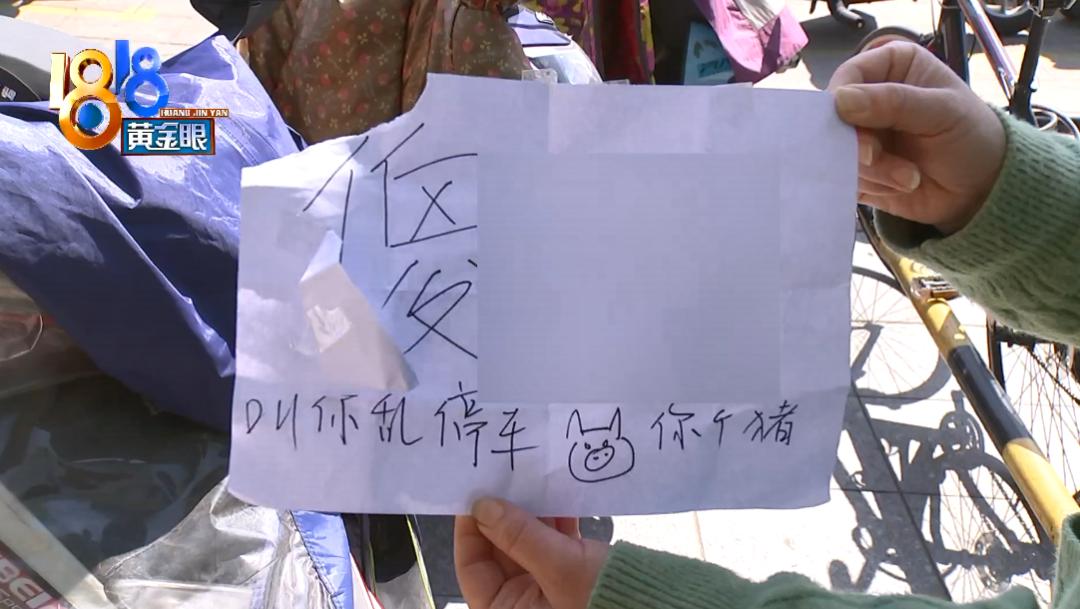 1818
HUANG JIN YAN
黄金眼
叫你乱停车 你个猪